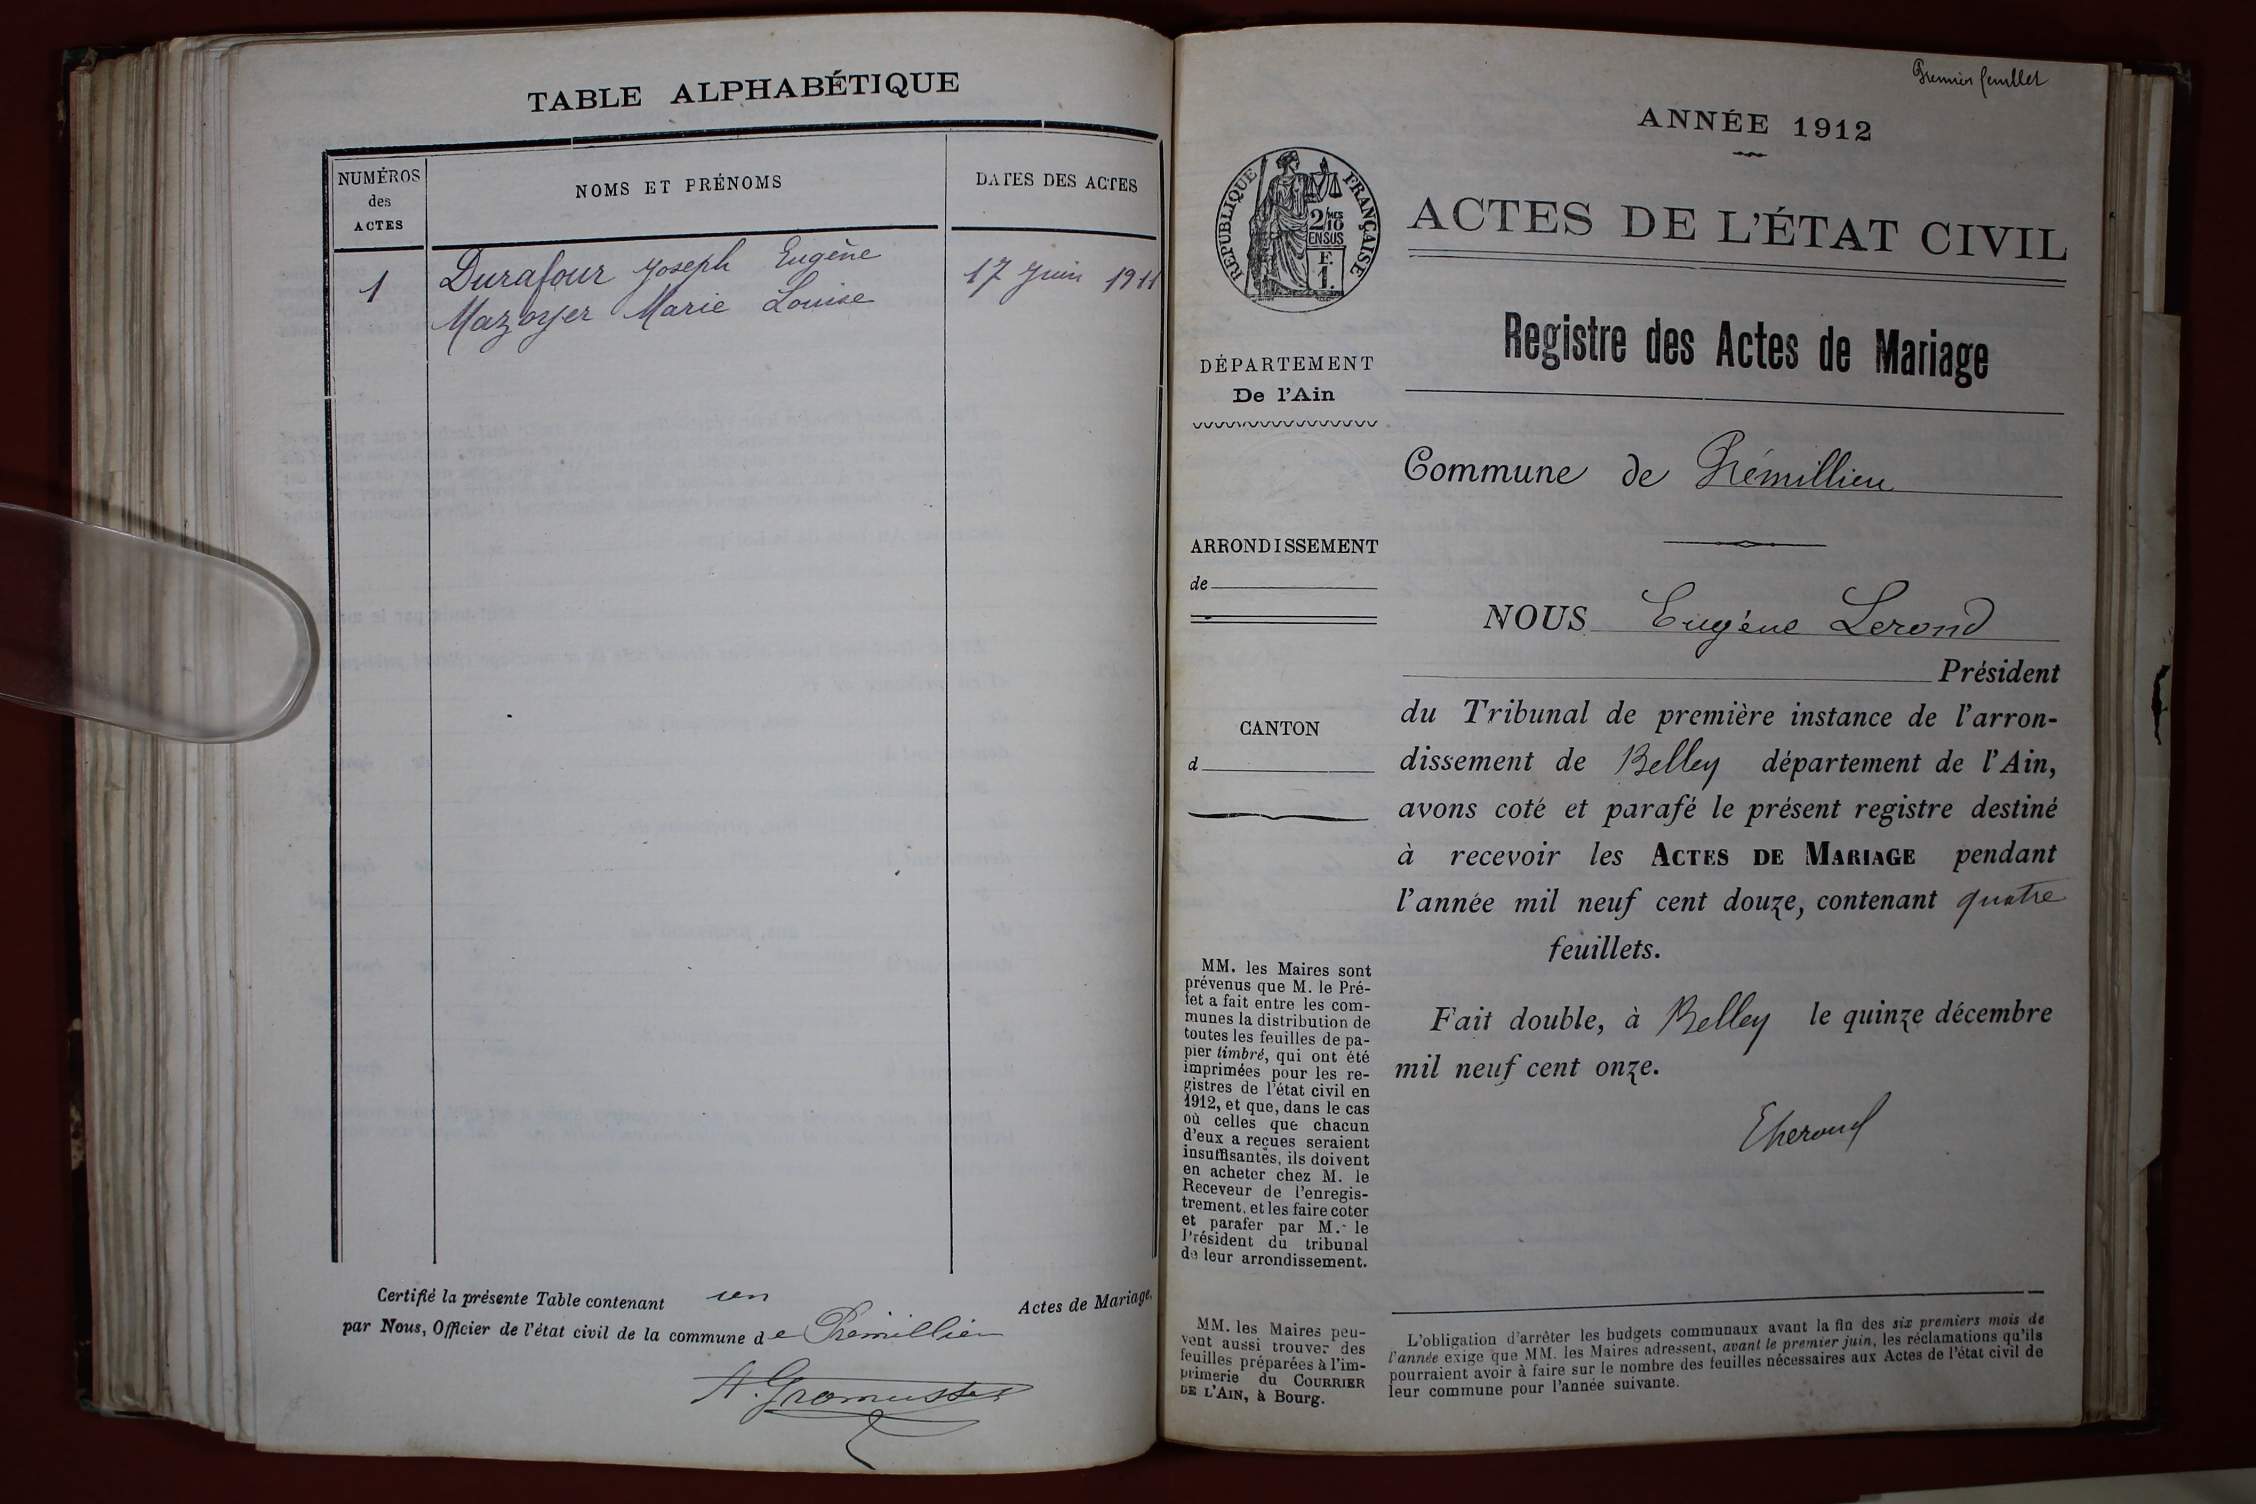 TABLE ALPHABÉTIQUE
NUMÉROS
des
ACTES
NOMS ET PRÉNOMS
DATES DES ACTES
1
Durafour Joseph Eugène
17 Juin 1911
Mazoyer Marie Louise
Certifié la présente Table contenant un Actes de Mariage,
par Nous, Officier de l'état civil de la commune de Prémillieu
Premier feuillet
ANNÉE 1912
RÉPUBLIQUE FRANÇAISE
2/MES
10
EN SUS
F.
1.
ACTES DE L'ÉTAT CIVIL
Registre des Actes de Mariage
DÉPARTEMENT
De l'Ain
Commune de Prémillieu
ARRONDISSEMENT
de
CANTON
d
NOUS Eugène Lerond
Président
du Tribunal de première instance de l'arron-
dissement de Belley département de l'Ain,
avons coté et parafé le présent registre destiné
à recevoir les ACTES DE MARIAGE pendant
l'année mil neuf cent douze, contenant quatre
feuillets.
Fait double, à Belley le quinze décembre
mil neuf cent onze.
ELerond
MM. les Maires sont
prévenus que M. le Pré-
fet a fait entre les com-
munes la distribution de
toutes les feuilles de pa-
pier timbré, qui ont été
imprimées pour les re-
gistres de l'état civil en
1912, et que, dans le cas
où celles que chacun
d'eux a reçues seraient
insuffisantes, ils doivent
en acheter chez M. le
Receveur de l'enregis-
trement, et les faire coter
et parafer par M. le
Président du tribunal
de leur arrondissement.
MM. les Maires peu-
vent aussi trouver des
feuilles préparées à l'im-
primerie du COURRIER
DE L'AIN, à Bourg.
L'obligation d'arrêter les budgets communaux avant la fin des six premiers mois de
l'année exige que MM. les Maires adressent, avant le premier juin, les réclamations qu'ils
pourraient avoir à faire sur le nombre des feuilles nécessaires aux Actes de l'état civil de
leur commune pour l'année suivante.